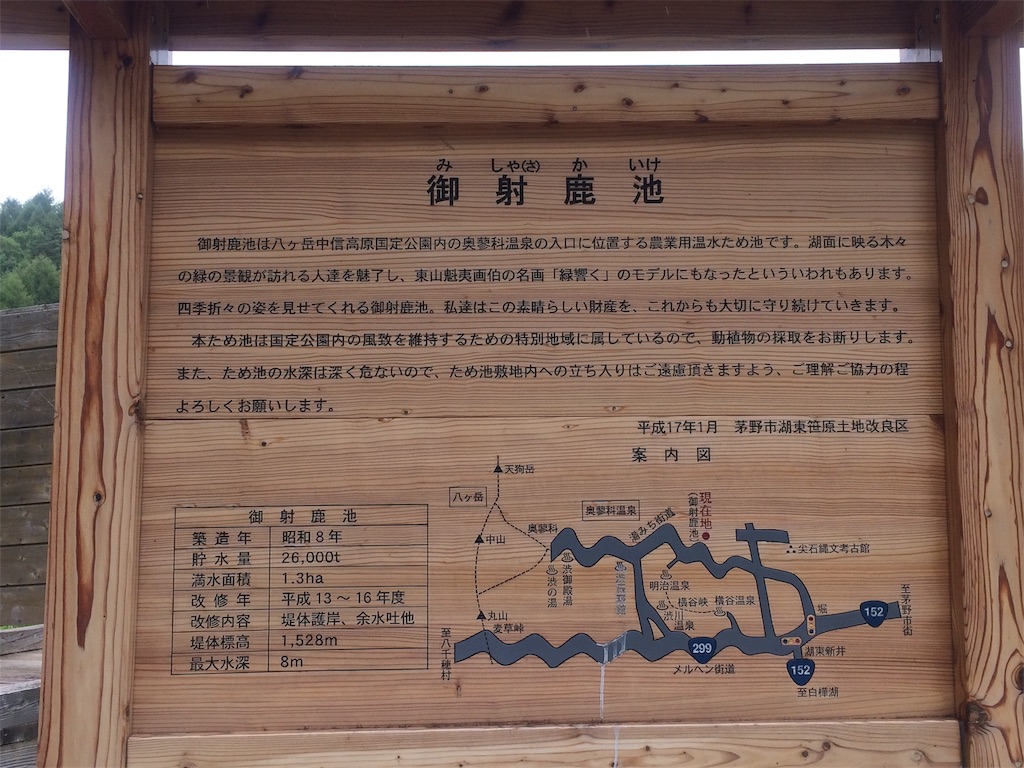 み しゃ(さ) か いけ
御射鹿池
御射鹿池は八ヶ岳中信高原国定公園内の奥蓼科温泉の入口に位置する農業用温水ため池です。湖面に映る木々
の緑の景観が訪れる人達を魅了し、東山魁夷画伯の名画「緑響く」のモデルにもなったといういわれもあります。
四季折々の姿を見せてくれる御射鹿池。私達はこの素晴らしい財産を、これからも大切に守り続けていきます。
本ため池は国定公園内の風致を維持するための特別地域に属しているので、動植物の採取をお断りします。
また、ため池の水深は深く危ないので、ため池敷地内への立ち入りはご遠慮頂きますよう、ご理解ご協力の程
よろしくお願いします。
平成17年1月 茅野市湖東笹原土地改良区
案内図
御射鹿池
築造年 昭和8年
貯水量 26,000t
満水面積 1.3ha
改修年 平成13~16年度
改修内容 堤体護岸、余水吐他
堤体標高 1,528m
最大水深 8m
天狗岳
八ヶ岳
中山
丸山
麦草峠
至八千穂村
奥蓼科
奥蓼科温泉
渋の湯
渋御殿湯
湯みち街道
現在地
(御射鹿池)
明治温泉
渋川温泉
横谷峡
横谷温泉
尖石縄文考古館
堀
至茅野市街
152
299
メルヘン街道
湖東新井
152
至白樺湖